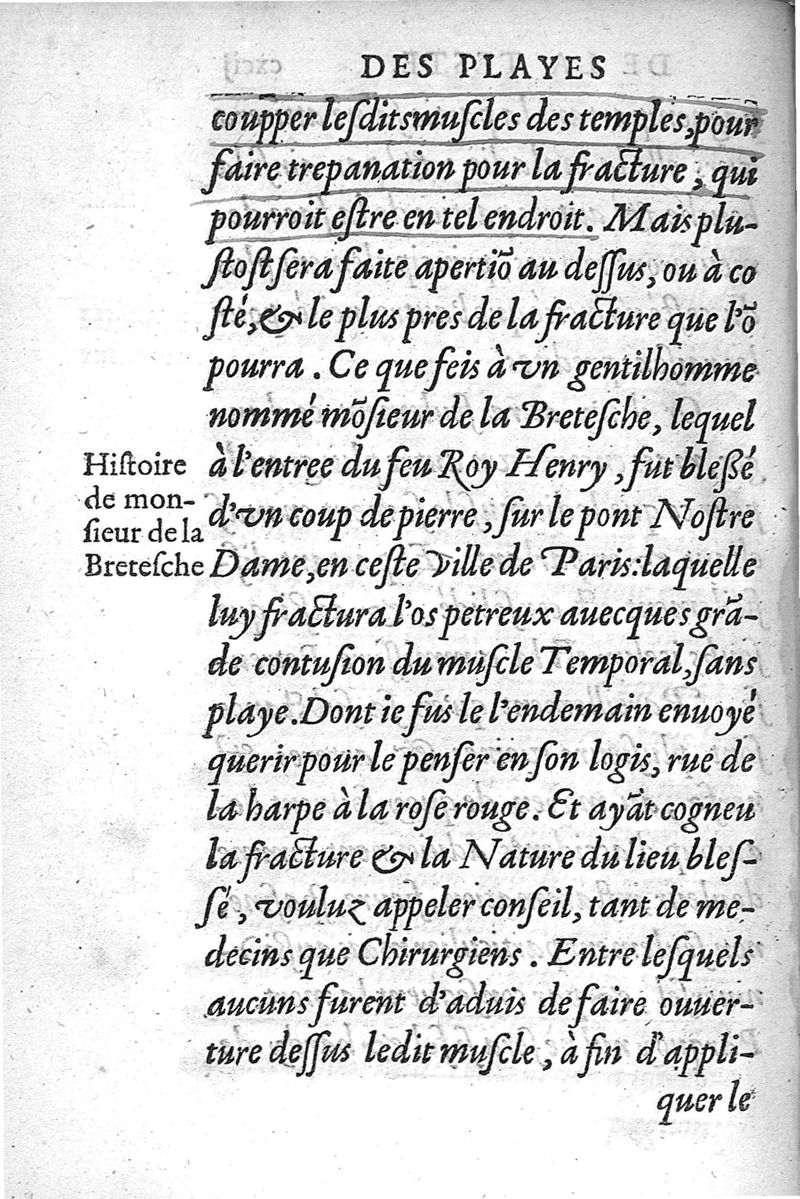 DES PLAYES
coupper leſdits muſcles des temples, pour
faire trepanation pour la fracture, qui
pourroit eſtre en tel endroit. Mais plu-
ſtoſt ſera faite apertiõ au deſſus, ou à co
ſté, & le plus pres de la fracture que l'õ
pourra. Ce que feis à vn gentilhomme
nommé mõſieur de la Breteſche, lequel
à l'entree du feu Roy Henry, fut bleſſé
d'vn coup de pierre, ſur le pont Noſtre
Dame, en ceſte ville de Paris: laquelle
luy fractura l'os petreux auecques grã-
de contuſion du muſcle Temporal, ſans
playe. Dont ie fus le l'endemain enuoyé
querir pour le penſer en ſon logis, rue de
la harpe à la roſe rouge. Et ayãt cogneu
la fracture & la Nature du lieu bleſ-
ſé, vouluz appeler conſeil, tant de me-
decins que Chirurgiens. Entre leſquels
aucuns furent d'aduis de faire ouuer-
ture deſſus ledit muſcle, à fin d'appli-
quer le
Hiſtoire
de mon-
ſieur de la
Breteſche